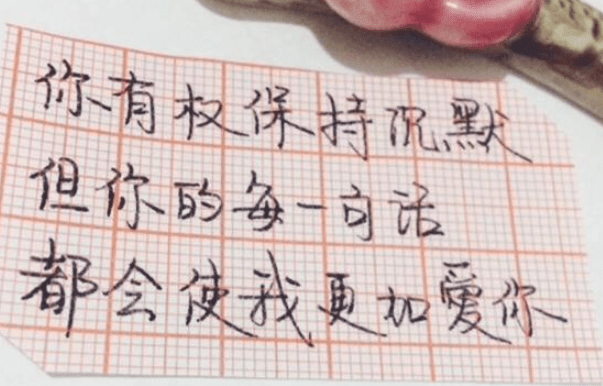 你有权保持沉默
但你的每一句话
都会使我更加愛你